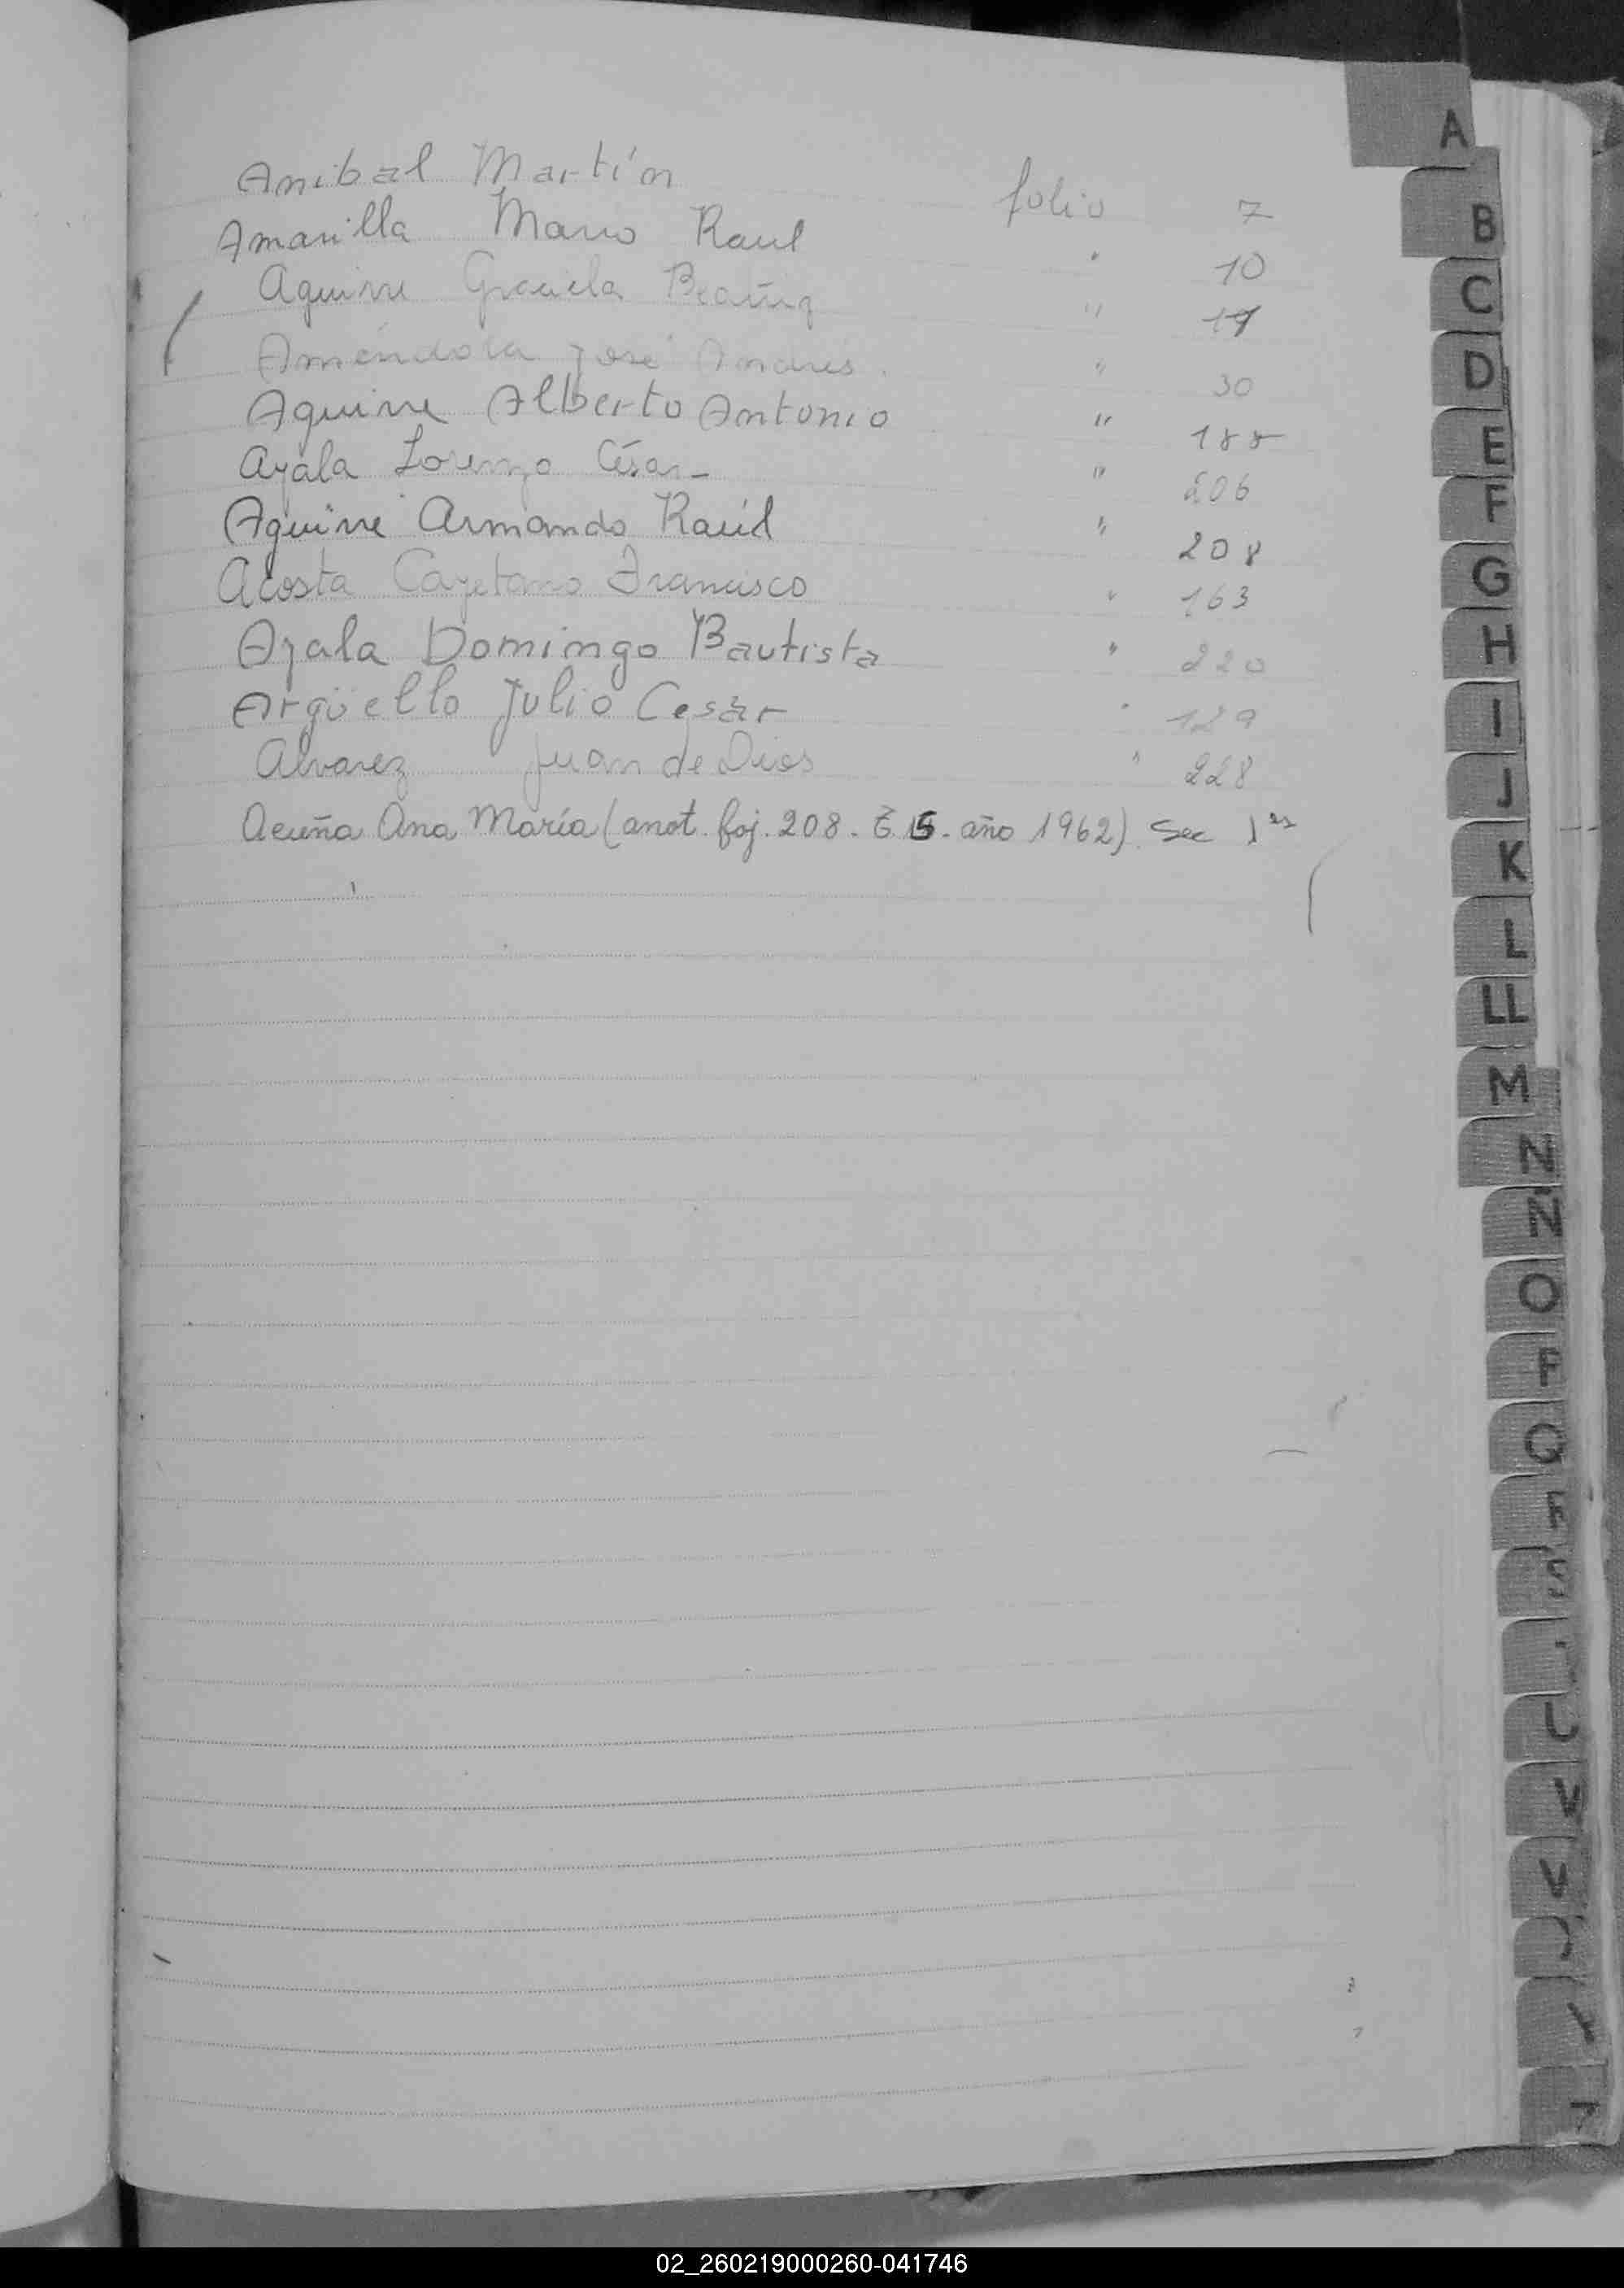 Anibal Martín folio 7
Amarilla Mario Raul " 10
Aguirre Graciela Beatriz " 19
Améndola José Andres. " 30
Aguirre Alberto Antonio " 188
Ayala Lorenzo César- " 206
Aguirre Armando Raúl " 208
Acosta Cayetano Francisco " 163
Ayala Domingo Bautista " 220
Argüello Julio Cesar " 129
Alvarez Juan de Dios " 228
Acuña Ana María (anot. foj. 208. T. 15. año 1962) Sec 1ra
A
B
C
D
E
F
G
H
I
J
K
L
LL
M
N
Ñ
O
P
Q
R
S
V
02_260219000260-041746